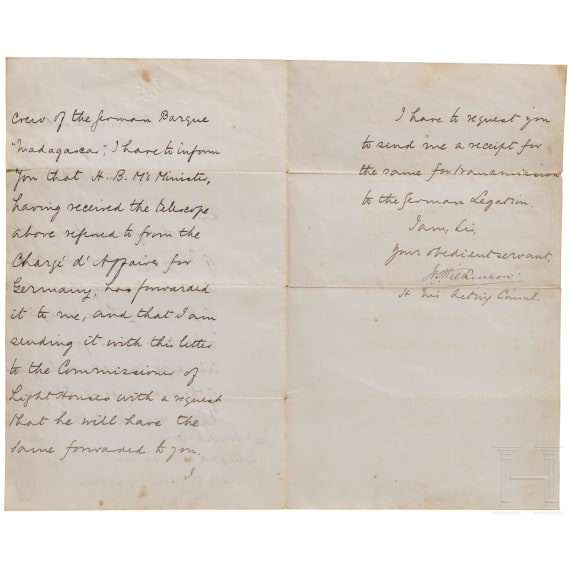 crew of the German Barque
"Madagascar", I have to inform
you that H. B. M's Minister,
having received the telescope
above referred to from the
Chargé d'Affaires for
Germany, has forwarded
it to me, and that I am
sending it with this letter
to the Commissioner of
Light Houses with a request
that he will have the
same forwarded to you.
I
I have to request you
to send me a receipt for
the same for transmission
to the German Legation.
I am, Sir,
your obedient servant.
Wilkinson
H M's Acting Consul.